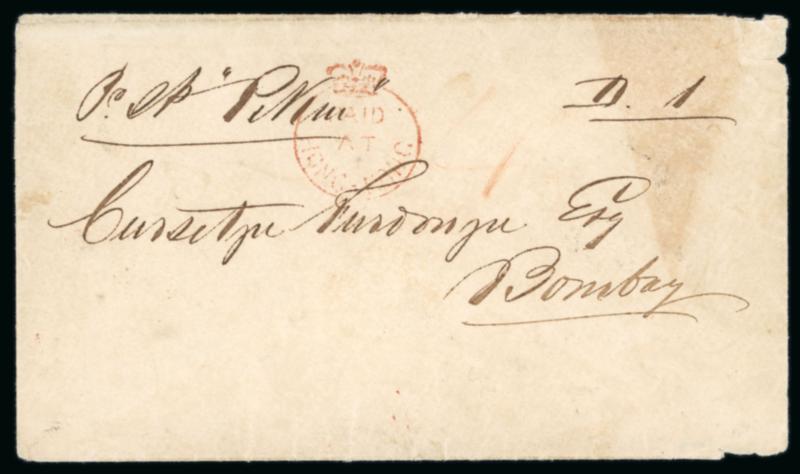 Pr Str "Pekin"
D. 1
PAID
AT
HONG KONG
Cursetjee Furdonjee Esq
Bombay